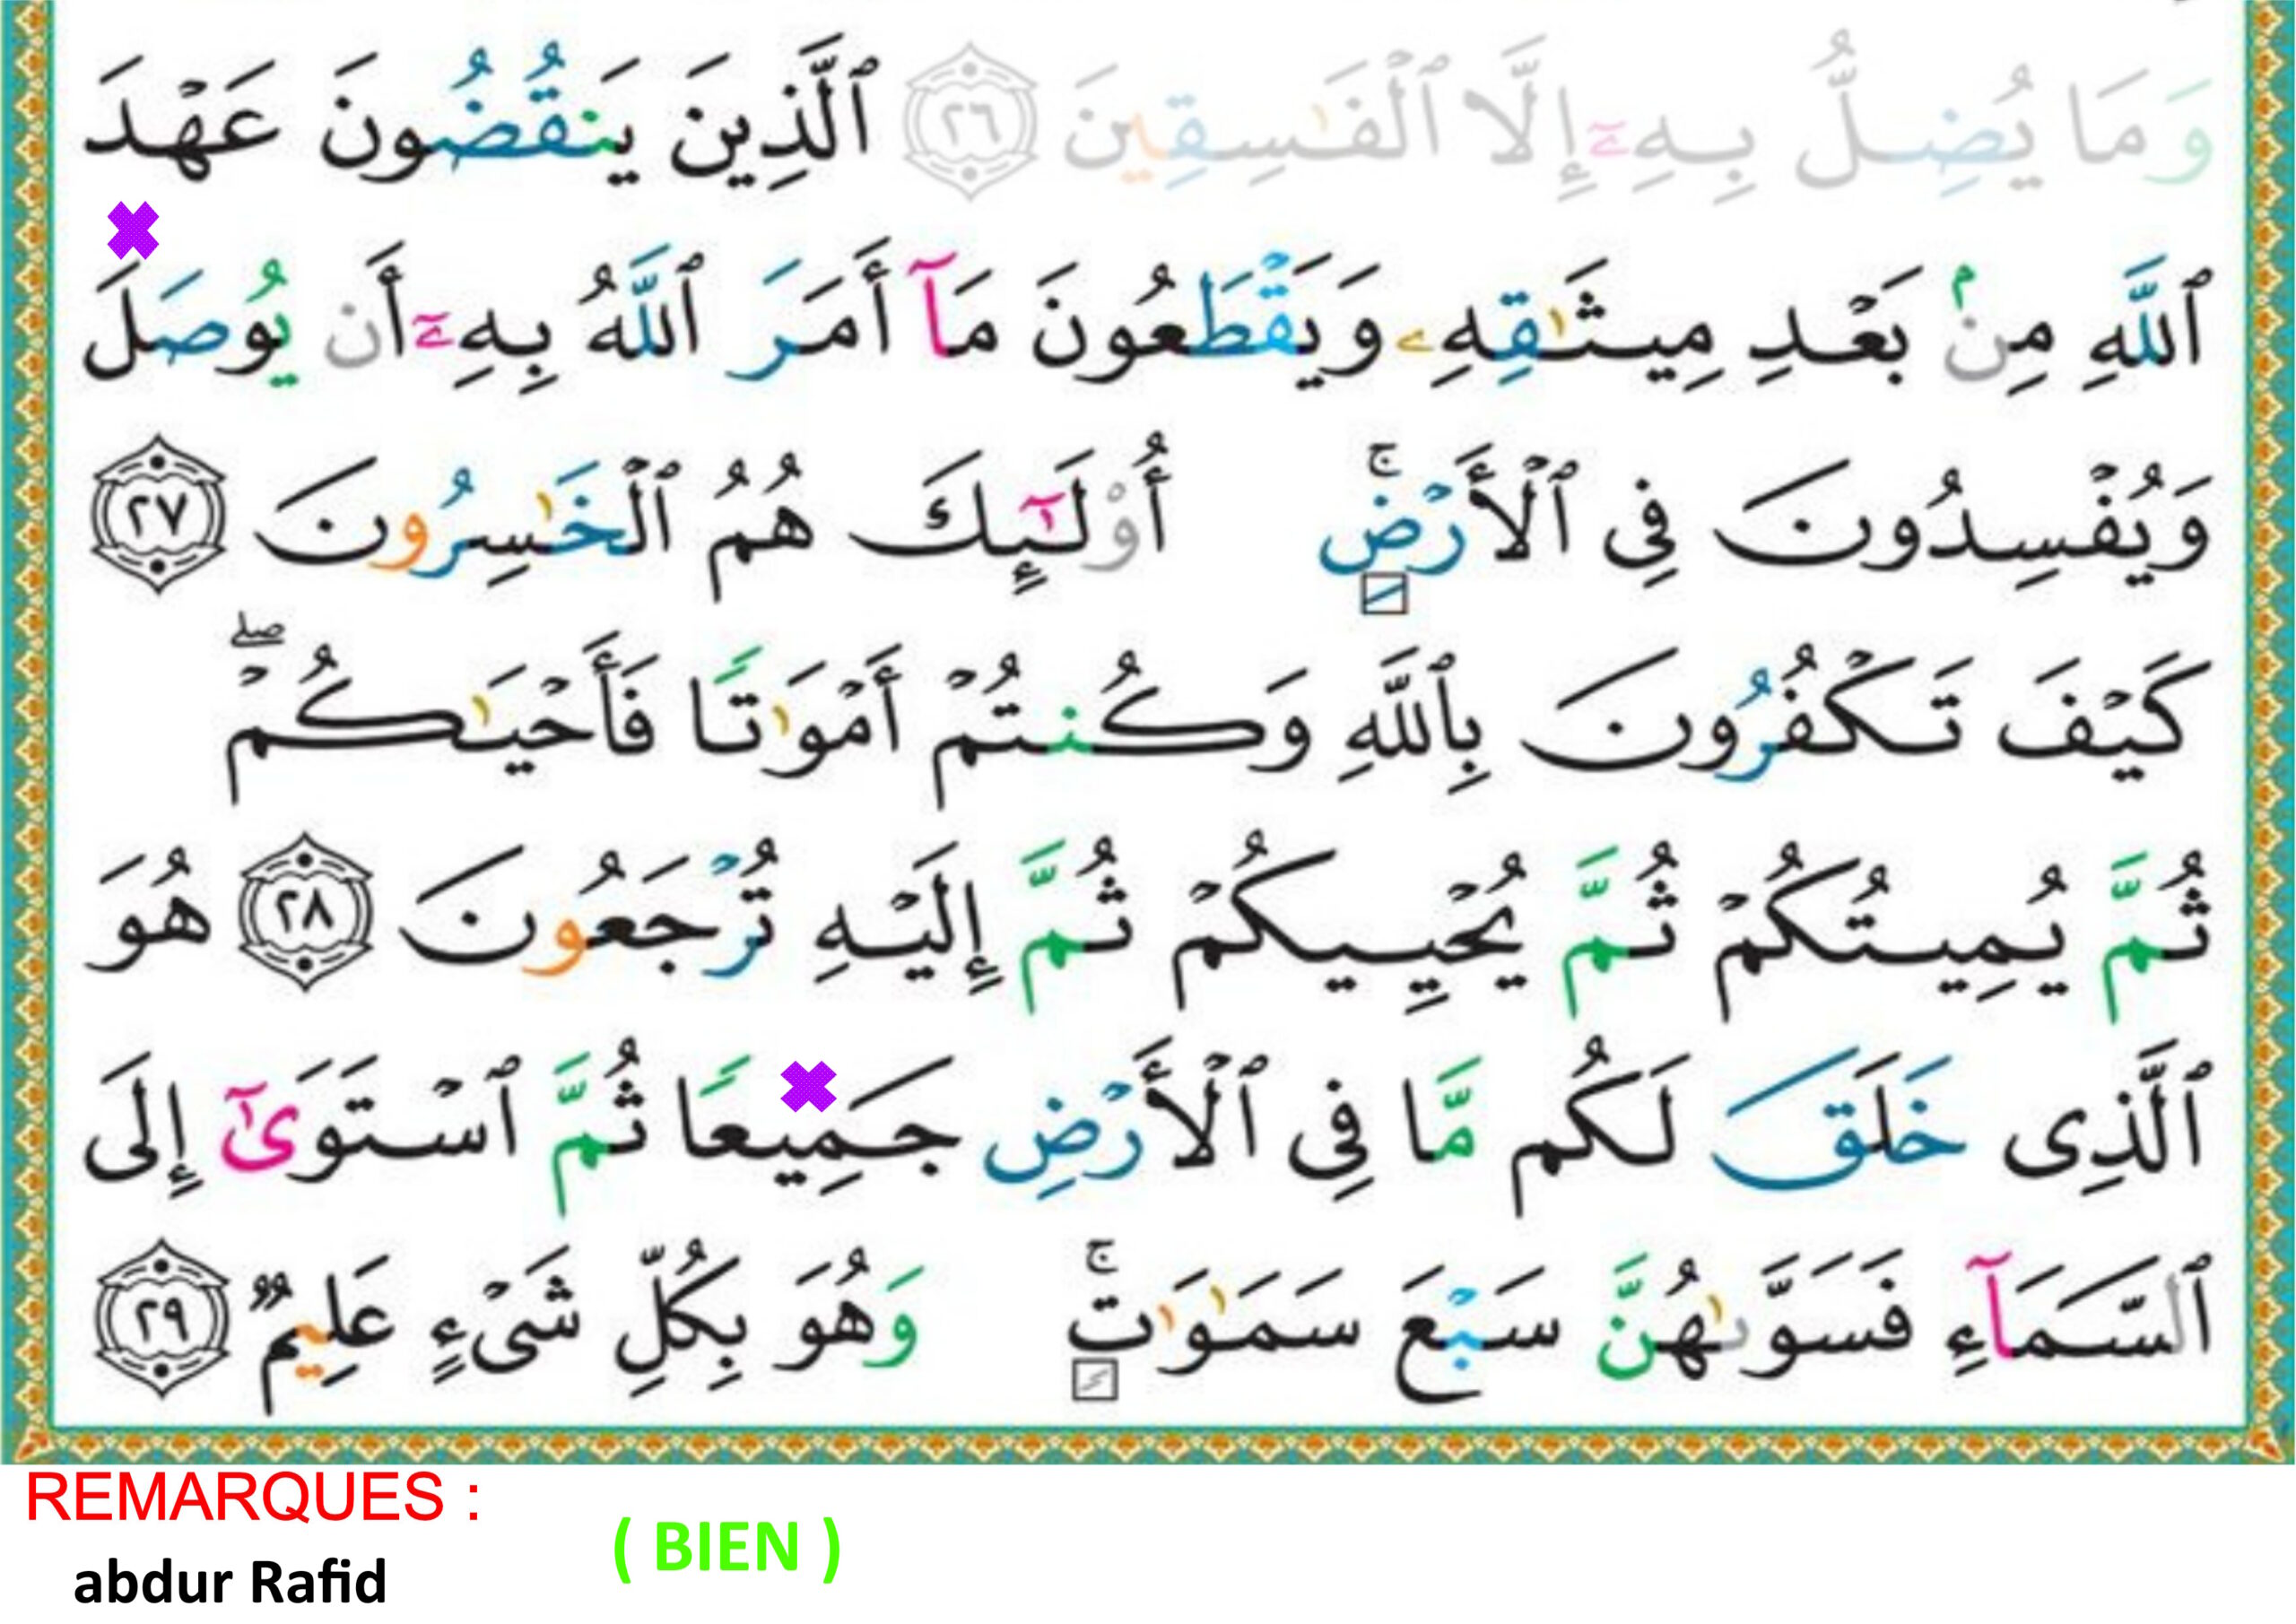 وَمَا يُضِلُّ بِهِۦٓ إِلَّا ٱلْفَـٰسِقِينَ ٢٦ ٱلَّذِينَ يَنقُضُونَ عَهْدَ
ٱللَّهِ مِنۢ بَعْدِ مِيثَـٰقِهِۦ وَيَقْطَعُونَ مَآ أَمَرَ ٱللَّهُ بِهِۦٓ أَن يُوصَلَ
وَيُفْسِدُونَ فِى ٱلْأَرْضِ ۚ أُو۟لَـٰٓئِكَ هُمُ ٱلْخَـٰسِرُونَ ٢٧
كَيْفَ تَكْفُرُونَ بِٱللَّهِ وَكُنتُمْ أَمْوَٰتًا فَأَحْيَـٰكُمْ ۖ
ثُمَّ يُمِيتُكُمْ ثُمَّ يُحْيِيكُمْ ثُمَّ إِلَيْهِ تُرْجَعُونَ ٢٨ هُوَ
ٱلَّذِى خَلَقَ لَكُم مَّا فِى ٱلْأَرْضِ جَمِيعًا ثُمَّ ٱسْتَوَىٰٓ إِلَى
ٱلسَّمَآءِ فَسَوَّىٰهُنَّ سَبْعَ سَمَـٰوَٰتٍ ۚ وَهُوَ بِكُلِّ شَىْءٍ عَلِيمٌ ٢٩
REMARQUES :
( BIEN )
abdur Rafid